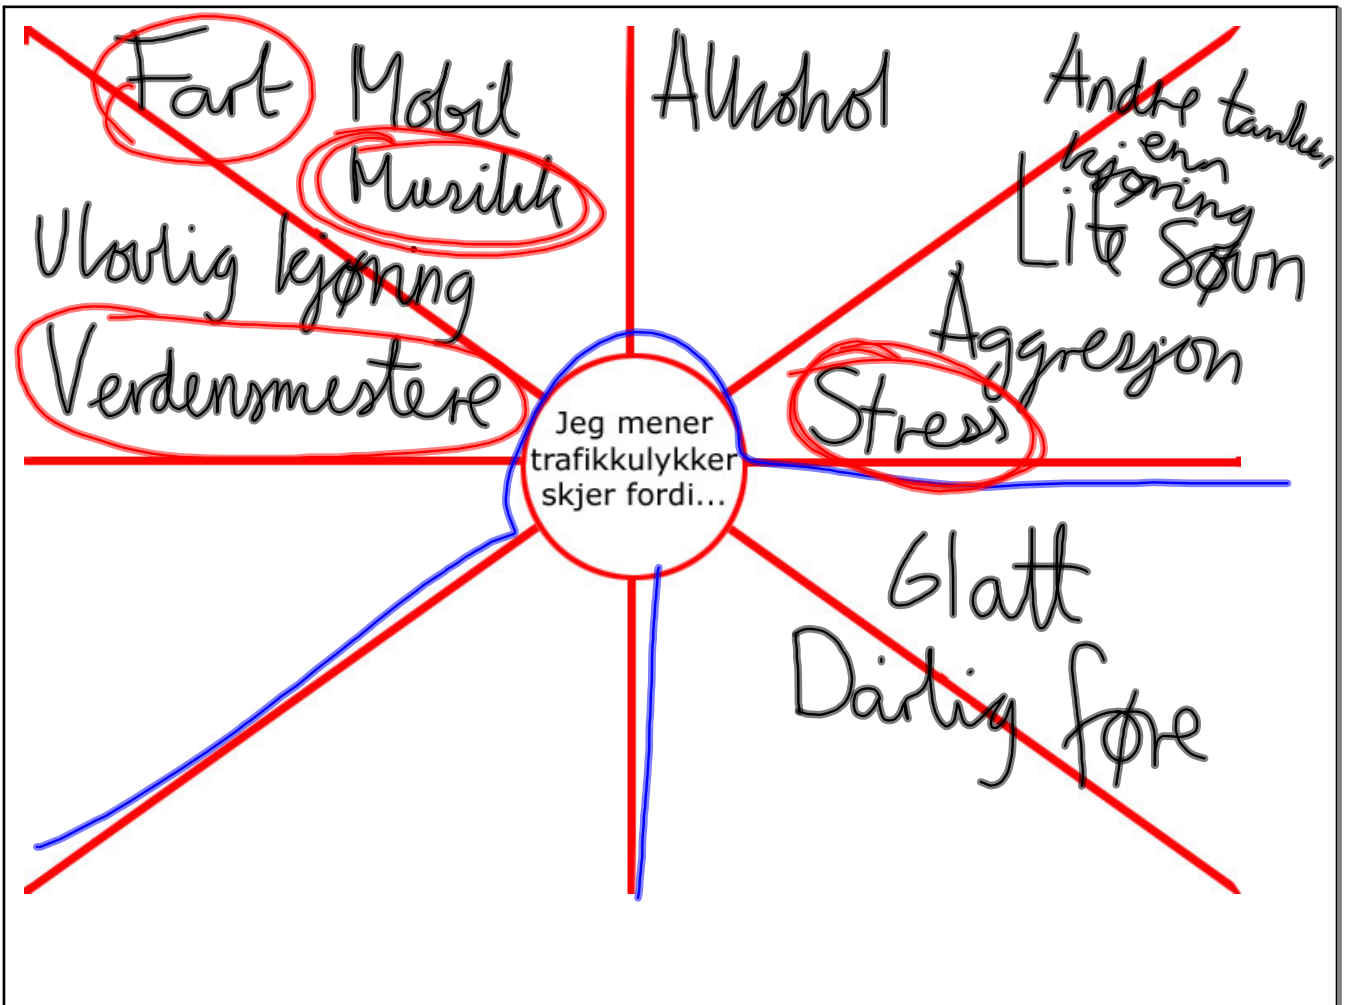 Fart
Mobil
Musikk
Ulovlig kjøring
Verdensmestere
Alkohol
Andre tanker
enn
kjøring
Lite Søvn
Aggresjon
Stress
Jeg mener
trafikkulykker
skjer fordi...
Glatt
Dårlig føre